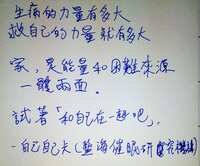 生病的力量有多大
救自己的力量就有多大
家，是能量和困難來源
一體兩面．
試著「和自己在一起吧」．
－自己自己夫(藍海催眠研